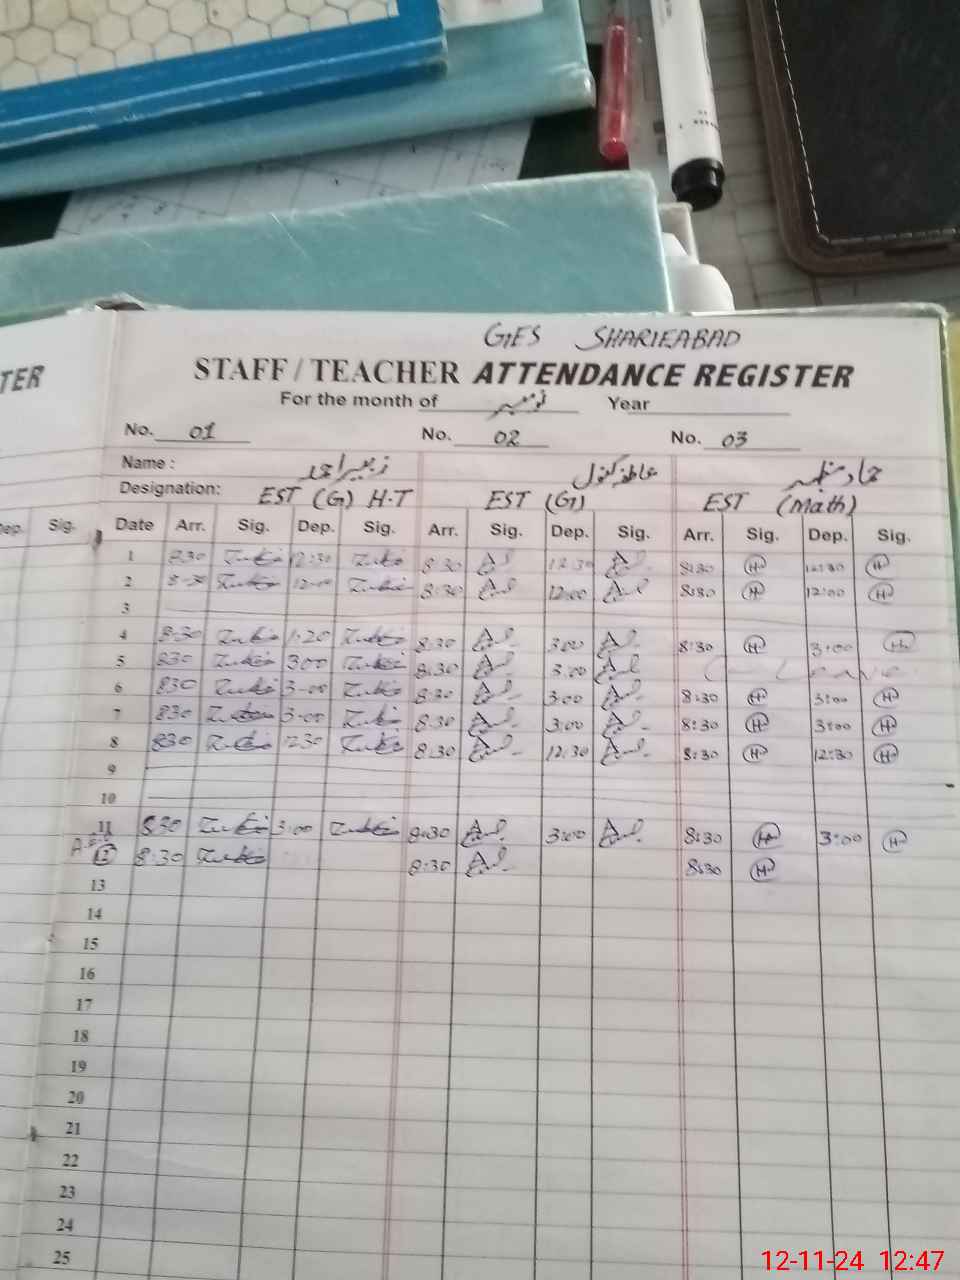 GES SHARIFABAD
TER
STAFF / TEACHER ATTENDANCE REGISTER
For the month of نومبر Year
No. 01 No. 02 No. 03
Name : زبیر احمد عاطفہ کنول
Designation: EST (G) H-T EST (G) EST (Math)
Dep. Sig. Date Arr. Sig. Dep. Sig. Arr. Sig. Dep. Sig. Arr. Sig. Dep. Sig.
1 8:30 12:30 8:30 12:30 8:30 12:30
2 8:30 12:00 8:30 12:00 8:30 12:00
3
4 8:30 1:20 8:30 3:00 8:30 3:00
5 830 300 8:30 3:00 Leave
6 830 3-00 8:30 3:00 8:30 3:00
7 830 3-00 8:30 3:00 8:30 3:00
8 830 1230 8:30 12:30 8:30 12:30
9
10
11 830 3:00 8:30 3:00 8:30 3:00
12 8:30 8:30 8:30
13
14
15
16
17
18
19
20
21
22
23
24
25
12-11-24 12:47